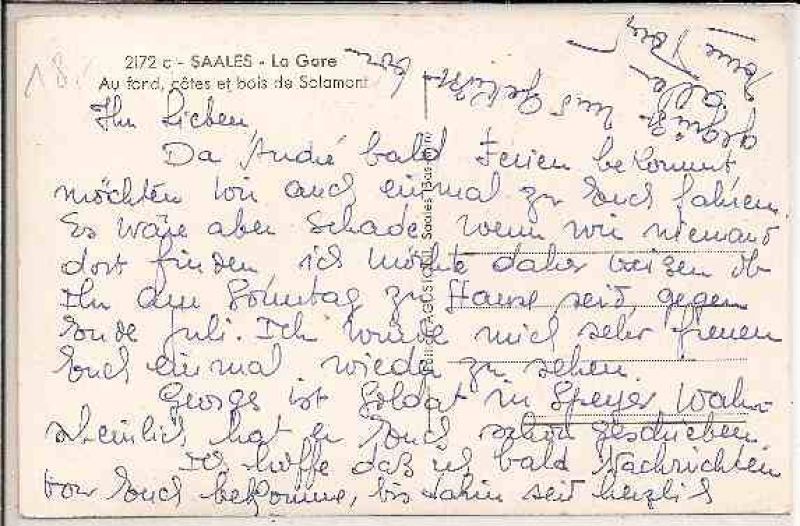 2172 c - SAALES - La Gare
Au fond, côtes et bois de Solamont
18.
Ihr Lieben,
Da André bald Ferien bekommt,
möchten wir auch einmal zu Euch fahren.
Es wäre aber Schade, wenn wir niemand
dort finden, ich möchte daher wissen ob
Ihr am Sonntag zu Hause seid, gegen
Ende Juli. Ich würde mich sehr freuen
Euch einmal wieder zu sehen.
George ist Soldat in Speyer. Wahr-
scheinlich hat er Euch schon geschrieben.
Ich hoffe daß ich bald Nachrichten
von Euch bekomme, bis dahin seid herzlich
gegrüßt und geküßt
von
Saales (Bas-Rhin)